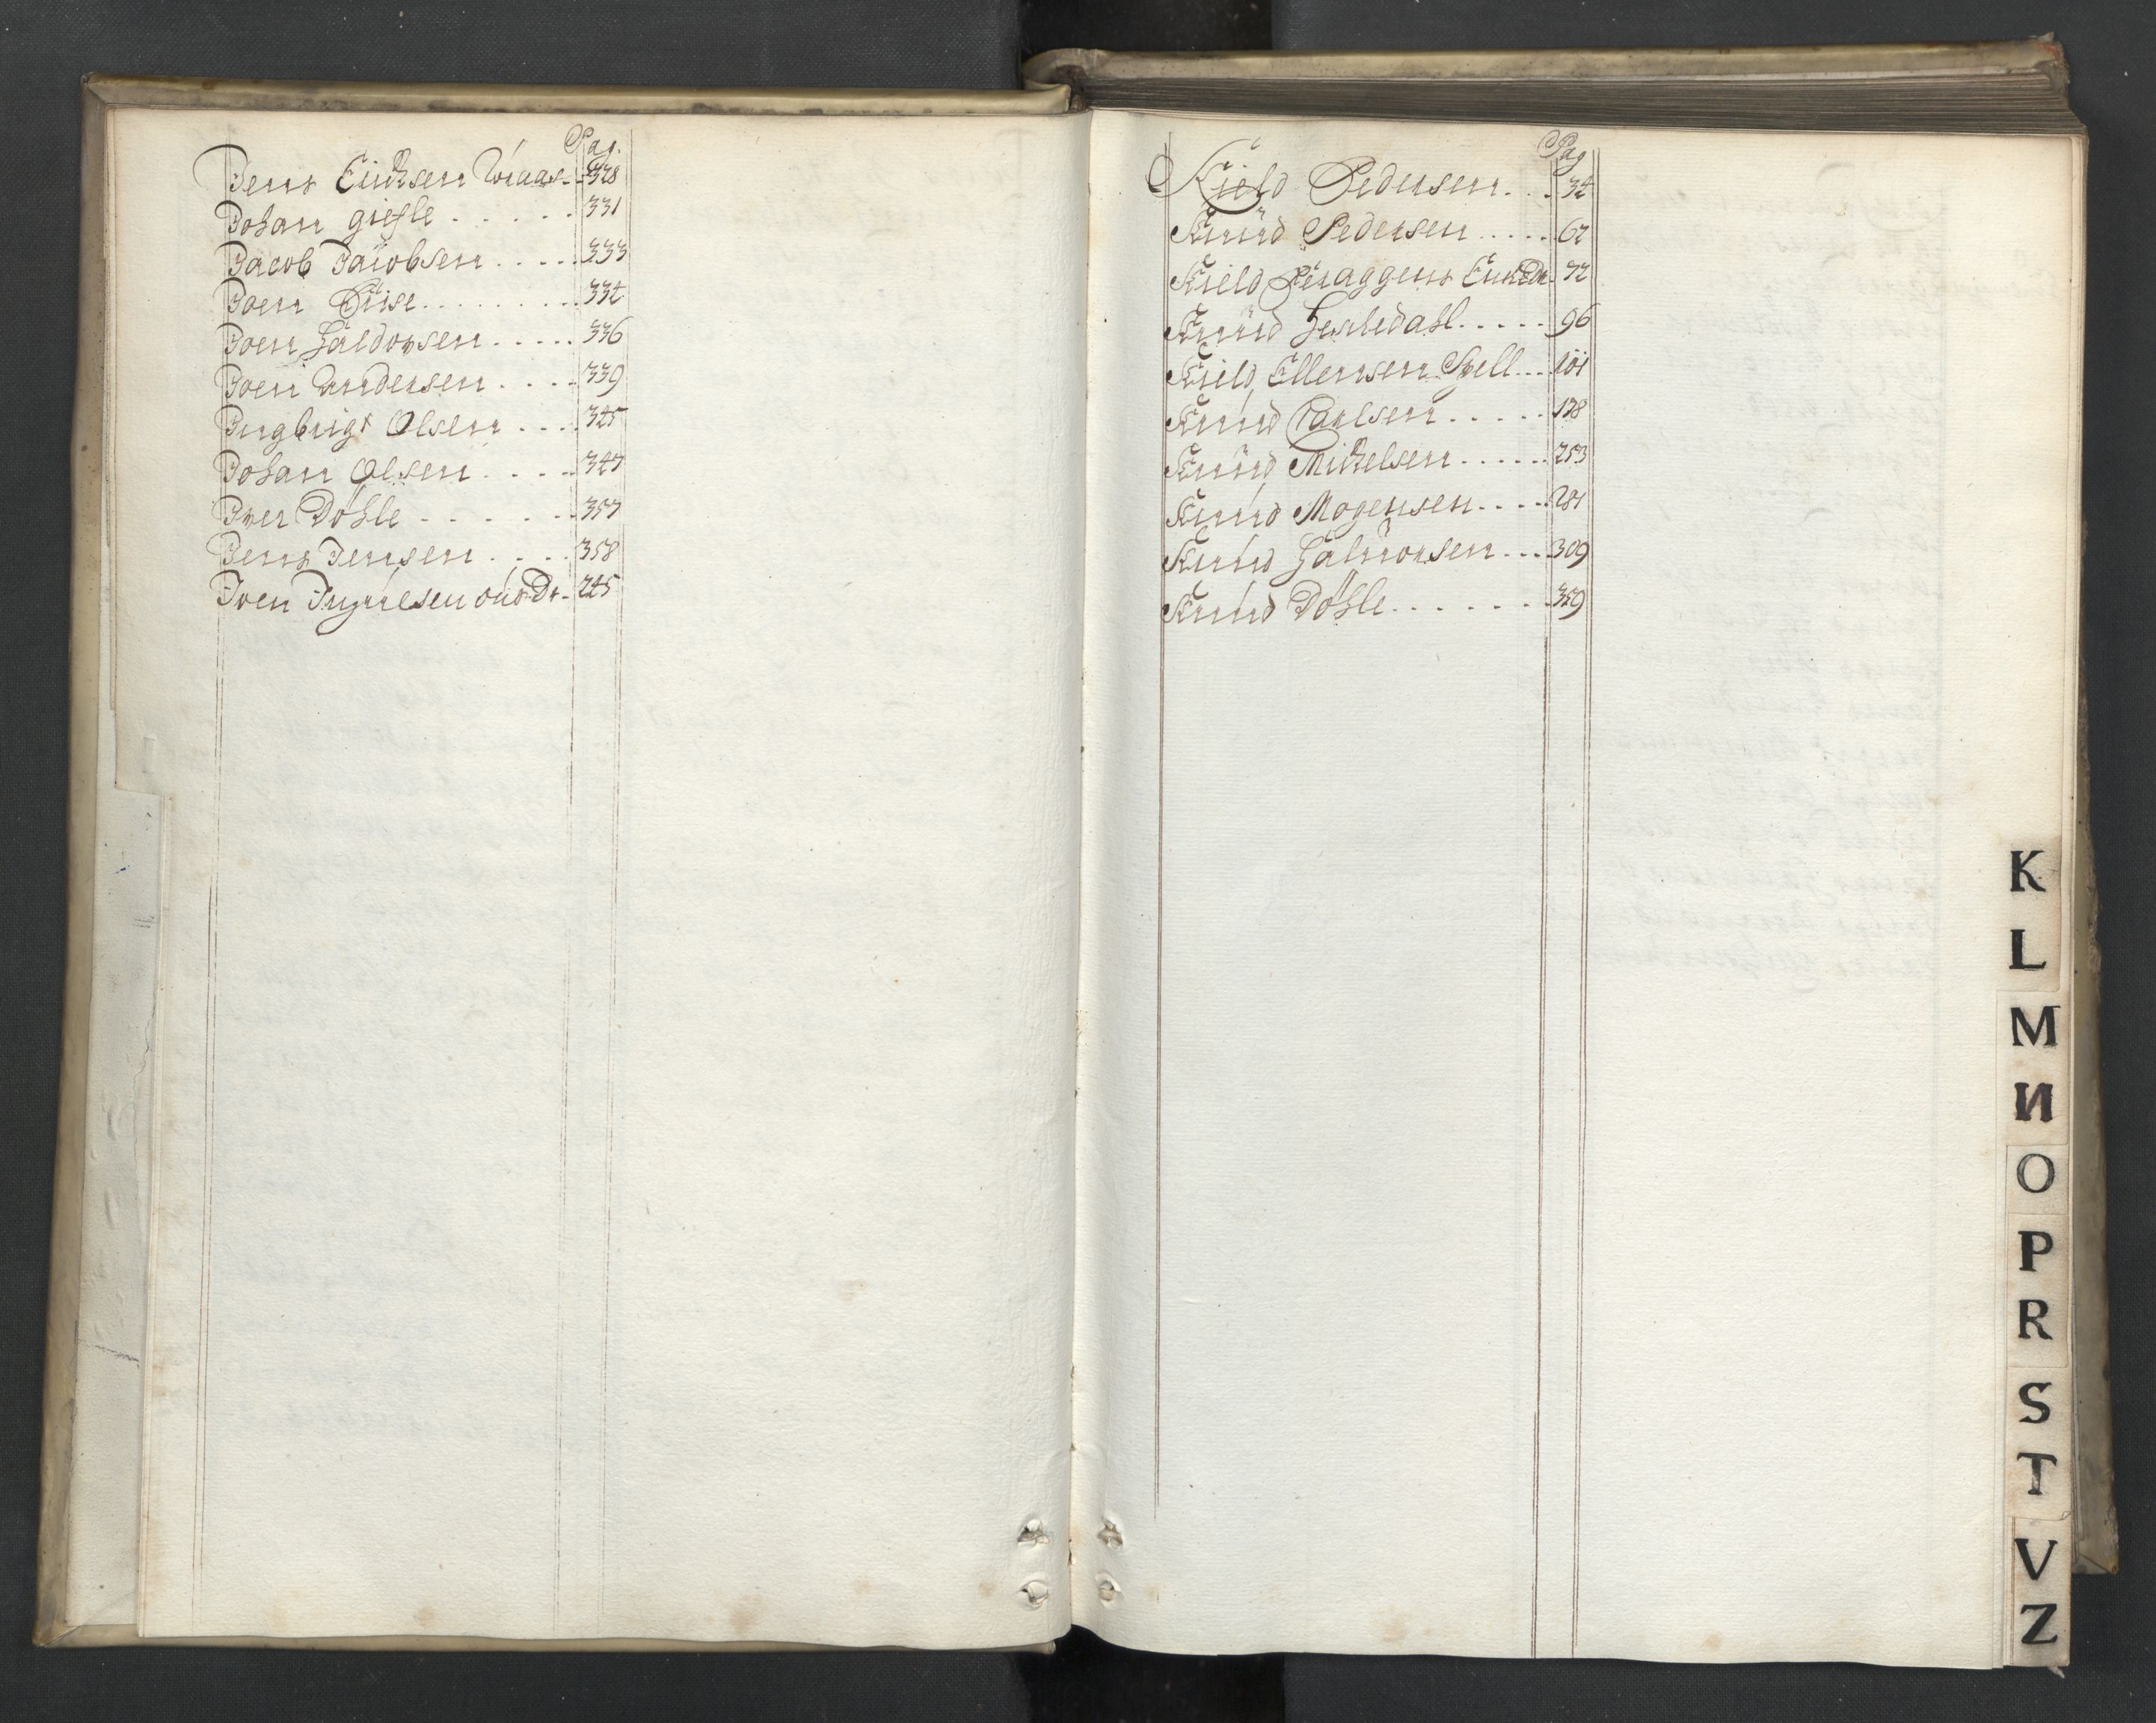 Pag.
Jens Erichsen 328
Johan giesle . . . . . . 331
Jacob Jacobsen . . . . . 333
Joen Riise . . . . . . . . 334
Joen Haldorsen . . . . . 336
Joen Andersen . . . . 339
Ingbrigt Olsen . . . . 345
Johan Olsen . . . . . 347
Iver Döhle . . . . . . . 357
Jens Jensen . . . . . 358
Iven 245
Pag
Kield Pedersen . . . 34
Knúd Pedersen . . . . . 67
Kield 72
Knúd Hesledahl . . . . . 96
Kield Ellensen Spell . . . 101
Knúd Carlsen . . . . . 138
Knúd Michelsen . . . . . . 253
Knúd Mogensen . . . . 281
Knúd Halvorsen . . . 309
Knúd Döhle . . . . . . . . 359
K
L
M
N
O
P
R
S
T
V
Z